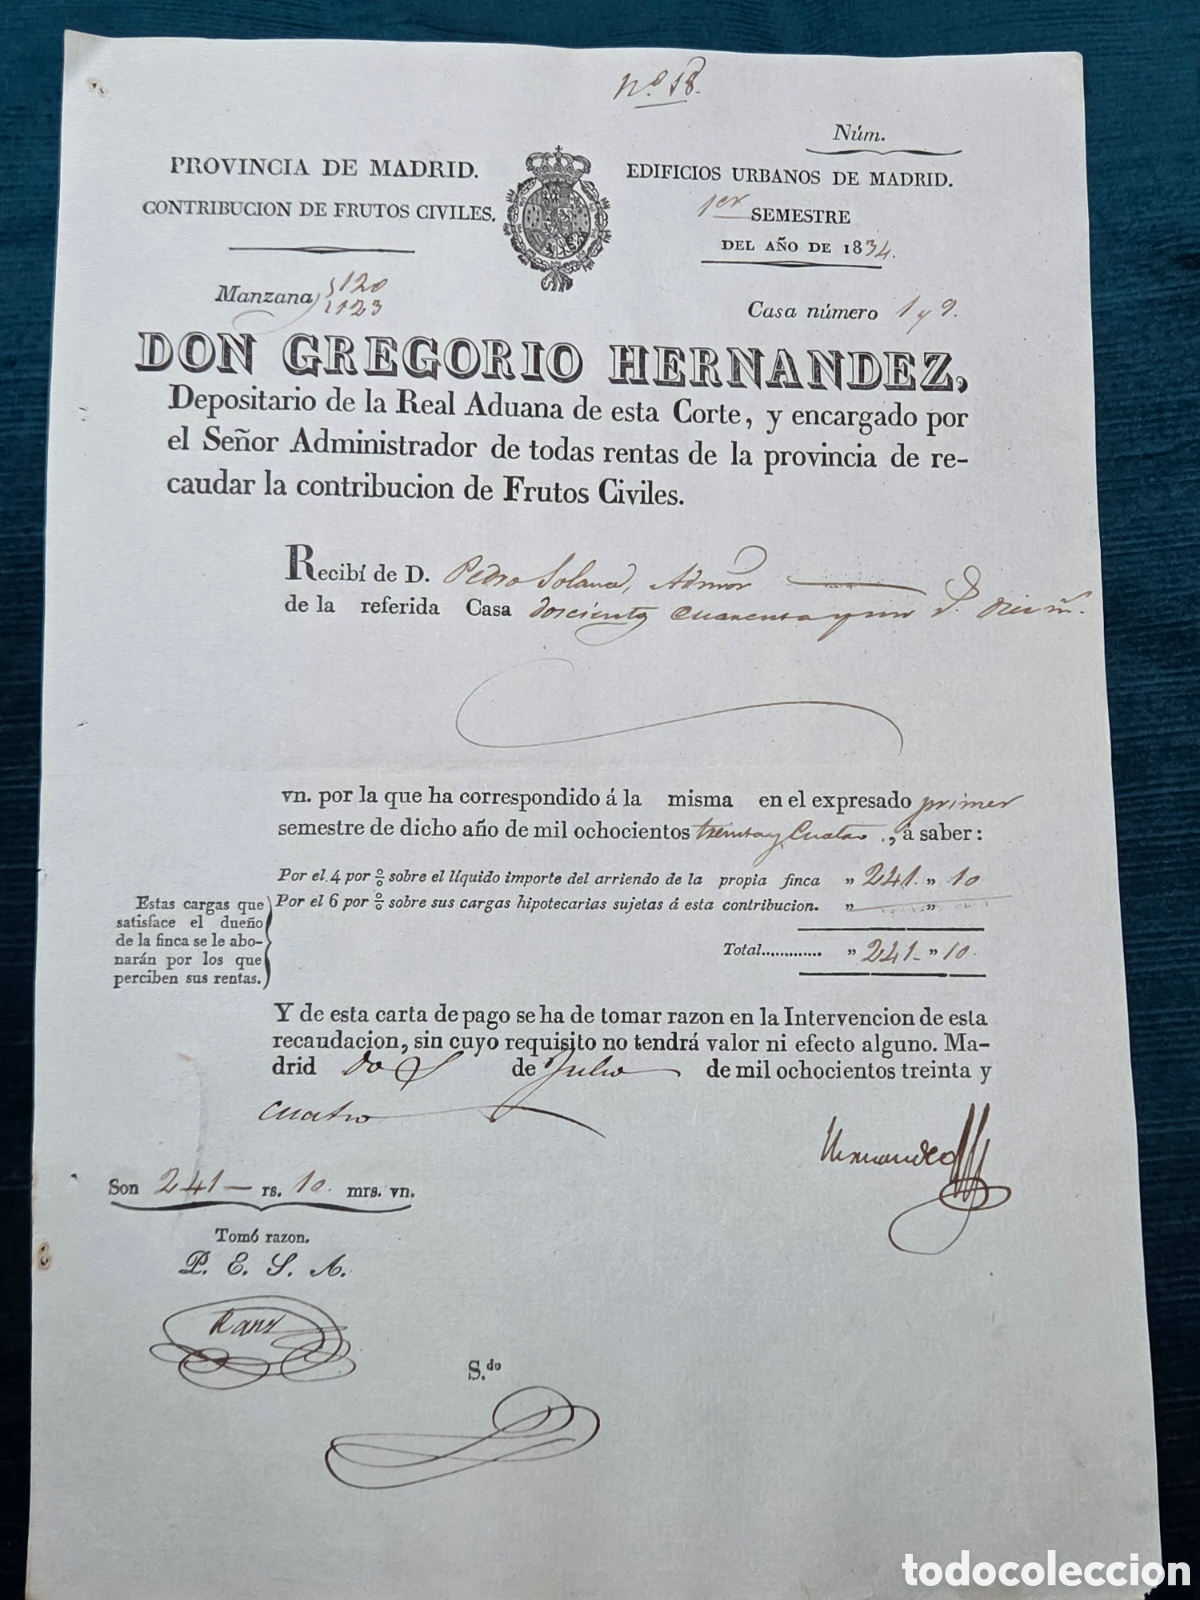 Nº 18.
Núm.
PROVINCIA DE MADRID.
CONTRIBUCION DE FRUTOS CIVILES.
EDIFICIOS URBANOS DE MADRID.
1er SEMESTRE
DEL AÑO DE 1834.
Manzana 120
123
Casa número 1 y 9.
DON GREGORIO HERNANDEZ,
Depositario de la Real Aduana de esta Corte, y encargado por
el Señor Administrador de todas rentas de la provincia de re-
caudar la contribucion de Frutos Civiles.
Recibí de D. Pedro Solana, Admor
de la referida Casa doscientos cuarenta y un rs. diez ms.
vn. por la que ha correspondido á la misma en el expresado primer
semestre de dicho año de mil ochocientos treinta y Cuatro., á saber:
Por el 4 por % sobre el líquido importe del arriendo de la propia finca „ 241. „ 10
Por el 6 por % sobre sus cargas hipotecarias sujetas á esta contribucion. „ „
Estas cargas que
satisface el dueño
de la finca se le abo-
narán por los que
perciben sus rentas.
Total............. „ 241 „ 10.
Y de esta carta de pago se ha de tomar razon en la Intervencion de esta
recaudacion, sin cuyo requisito no tendrá valor ni efecto alguno. Ma-
drid dos de Julio de mil ochocientos treinta y
cuatro
Hernandez
Son 241 rs. 10. mrs. vn.
Tomó razon.
P. E. S. A.
Ranz
S.do
todocoleccion